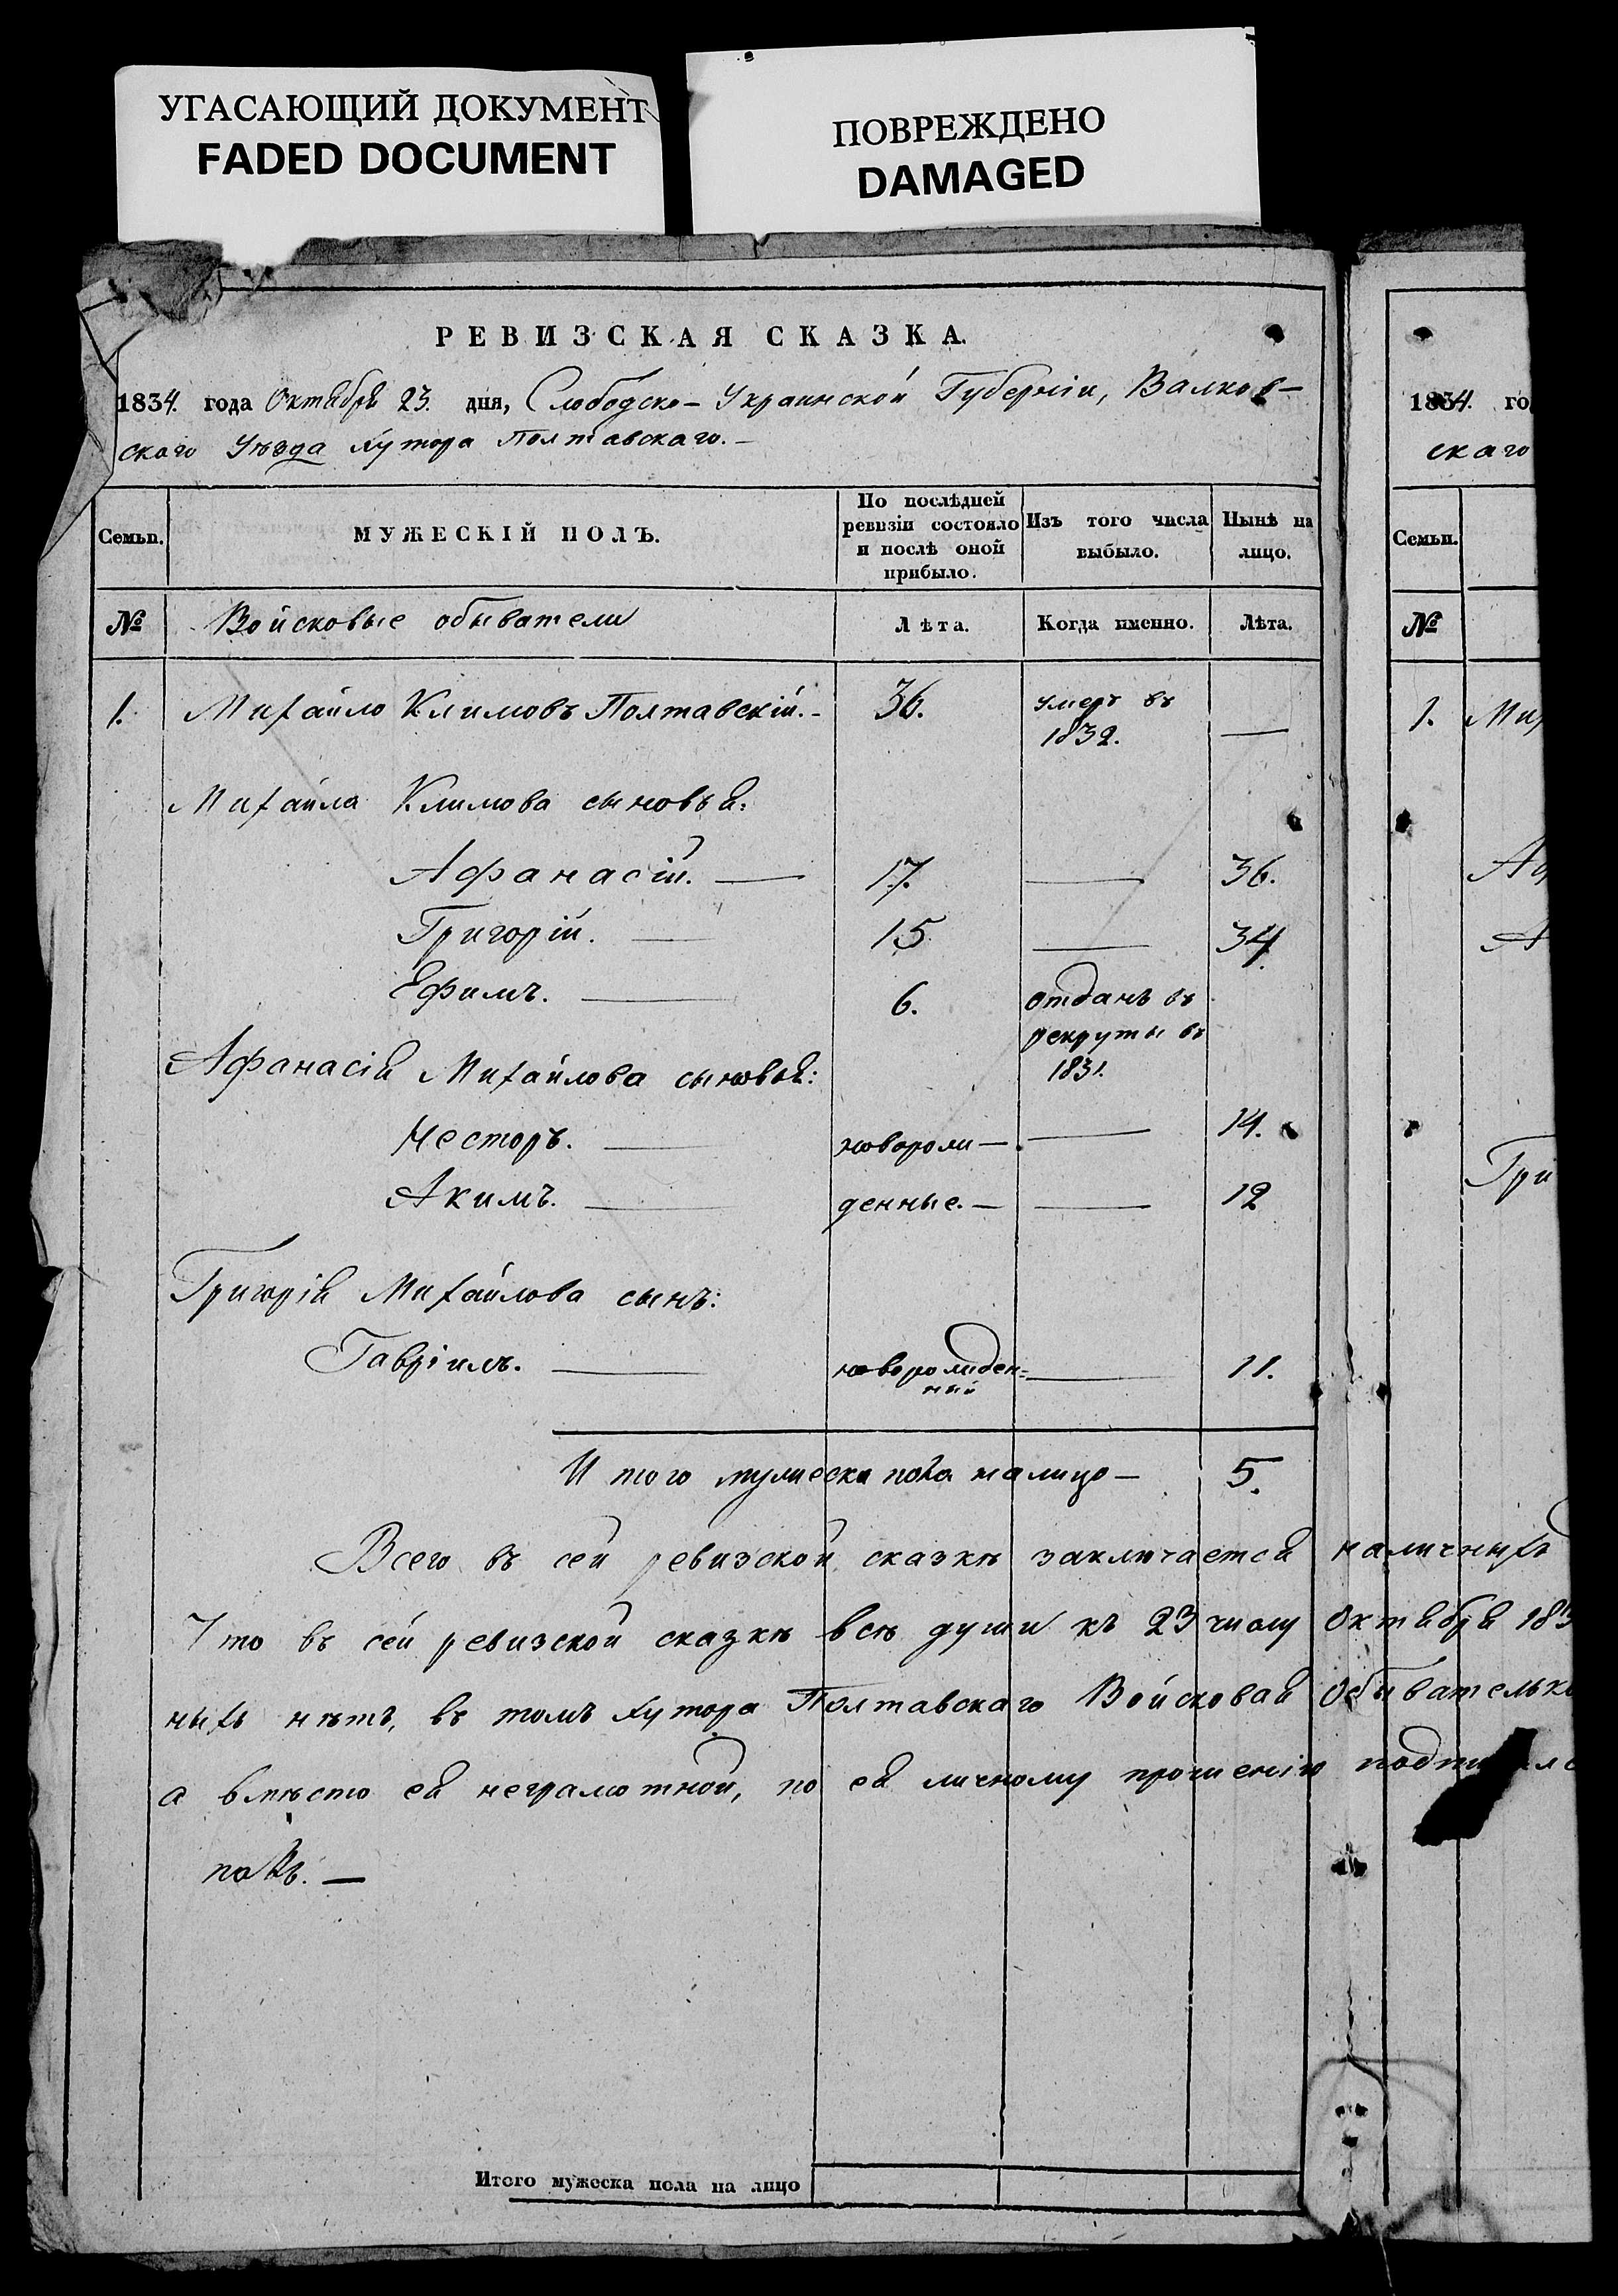 УГАСАЮЩИЙ ДОКУМЕНТ
FADED DOCUMENT
ПОВРЕЖДЕНО
DAMAGED
РЕВИЗСКАЯ СКАЗКА.
1834. года Октября 23. дня, Слободско-Украинской Губерніи, Валков-
скаго Уѣзда хутора Полтавскаго.-
Семьи.
МУЖЕСКІЙ ПОЛЪ.
По послѣдней
ревизіи состояло
и послѣ оной
прибыло.
Изъ того числа
выбыло.
Нынѣ на
лицо.
№ Войсковые обыватели Лѣта. Когда именно. Лѣта.
1. Михайло Климовъ Полтавскій.- 36. умеръ въ
1832. —
Михайла Климова сыновья:
Афанасій. — 17. — 36.
Григорій. — 15 — 34.
Ефимъ. — 6. отданъ въ
рекруты въ
1831.
Афанасія Михайлова сыновья:
Несторъ. — новорож- — 14.
Акимъ. — денные.- — 12
Григорія Михайлова сынъ:
Гавріилъ. — новорожден=
ный — 11.
Итого мужеска пола налицо — 5.
Всего въ сей ревизской сказкѣ заключается наличныхъ
Что въ сей ревизской сказкѣ всѣ души къ 23 числу Октября 183
ныхъ нѣтъ, въ томъ хутора Полтавскаго Войсковая Обывательк
а вмѣсто ея неграмотной, по ея личному прошенію
Итого мужеска пола на лицо
1834. го
скаго
Семьи.
№
1. Мих
Аф
А
Гри